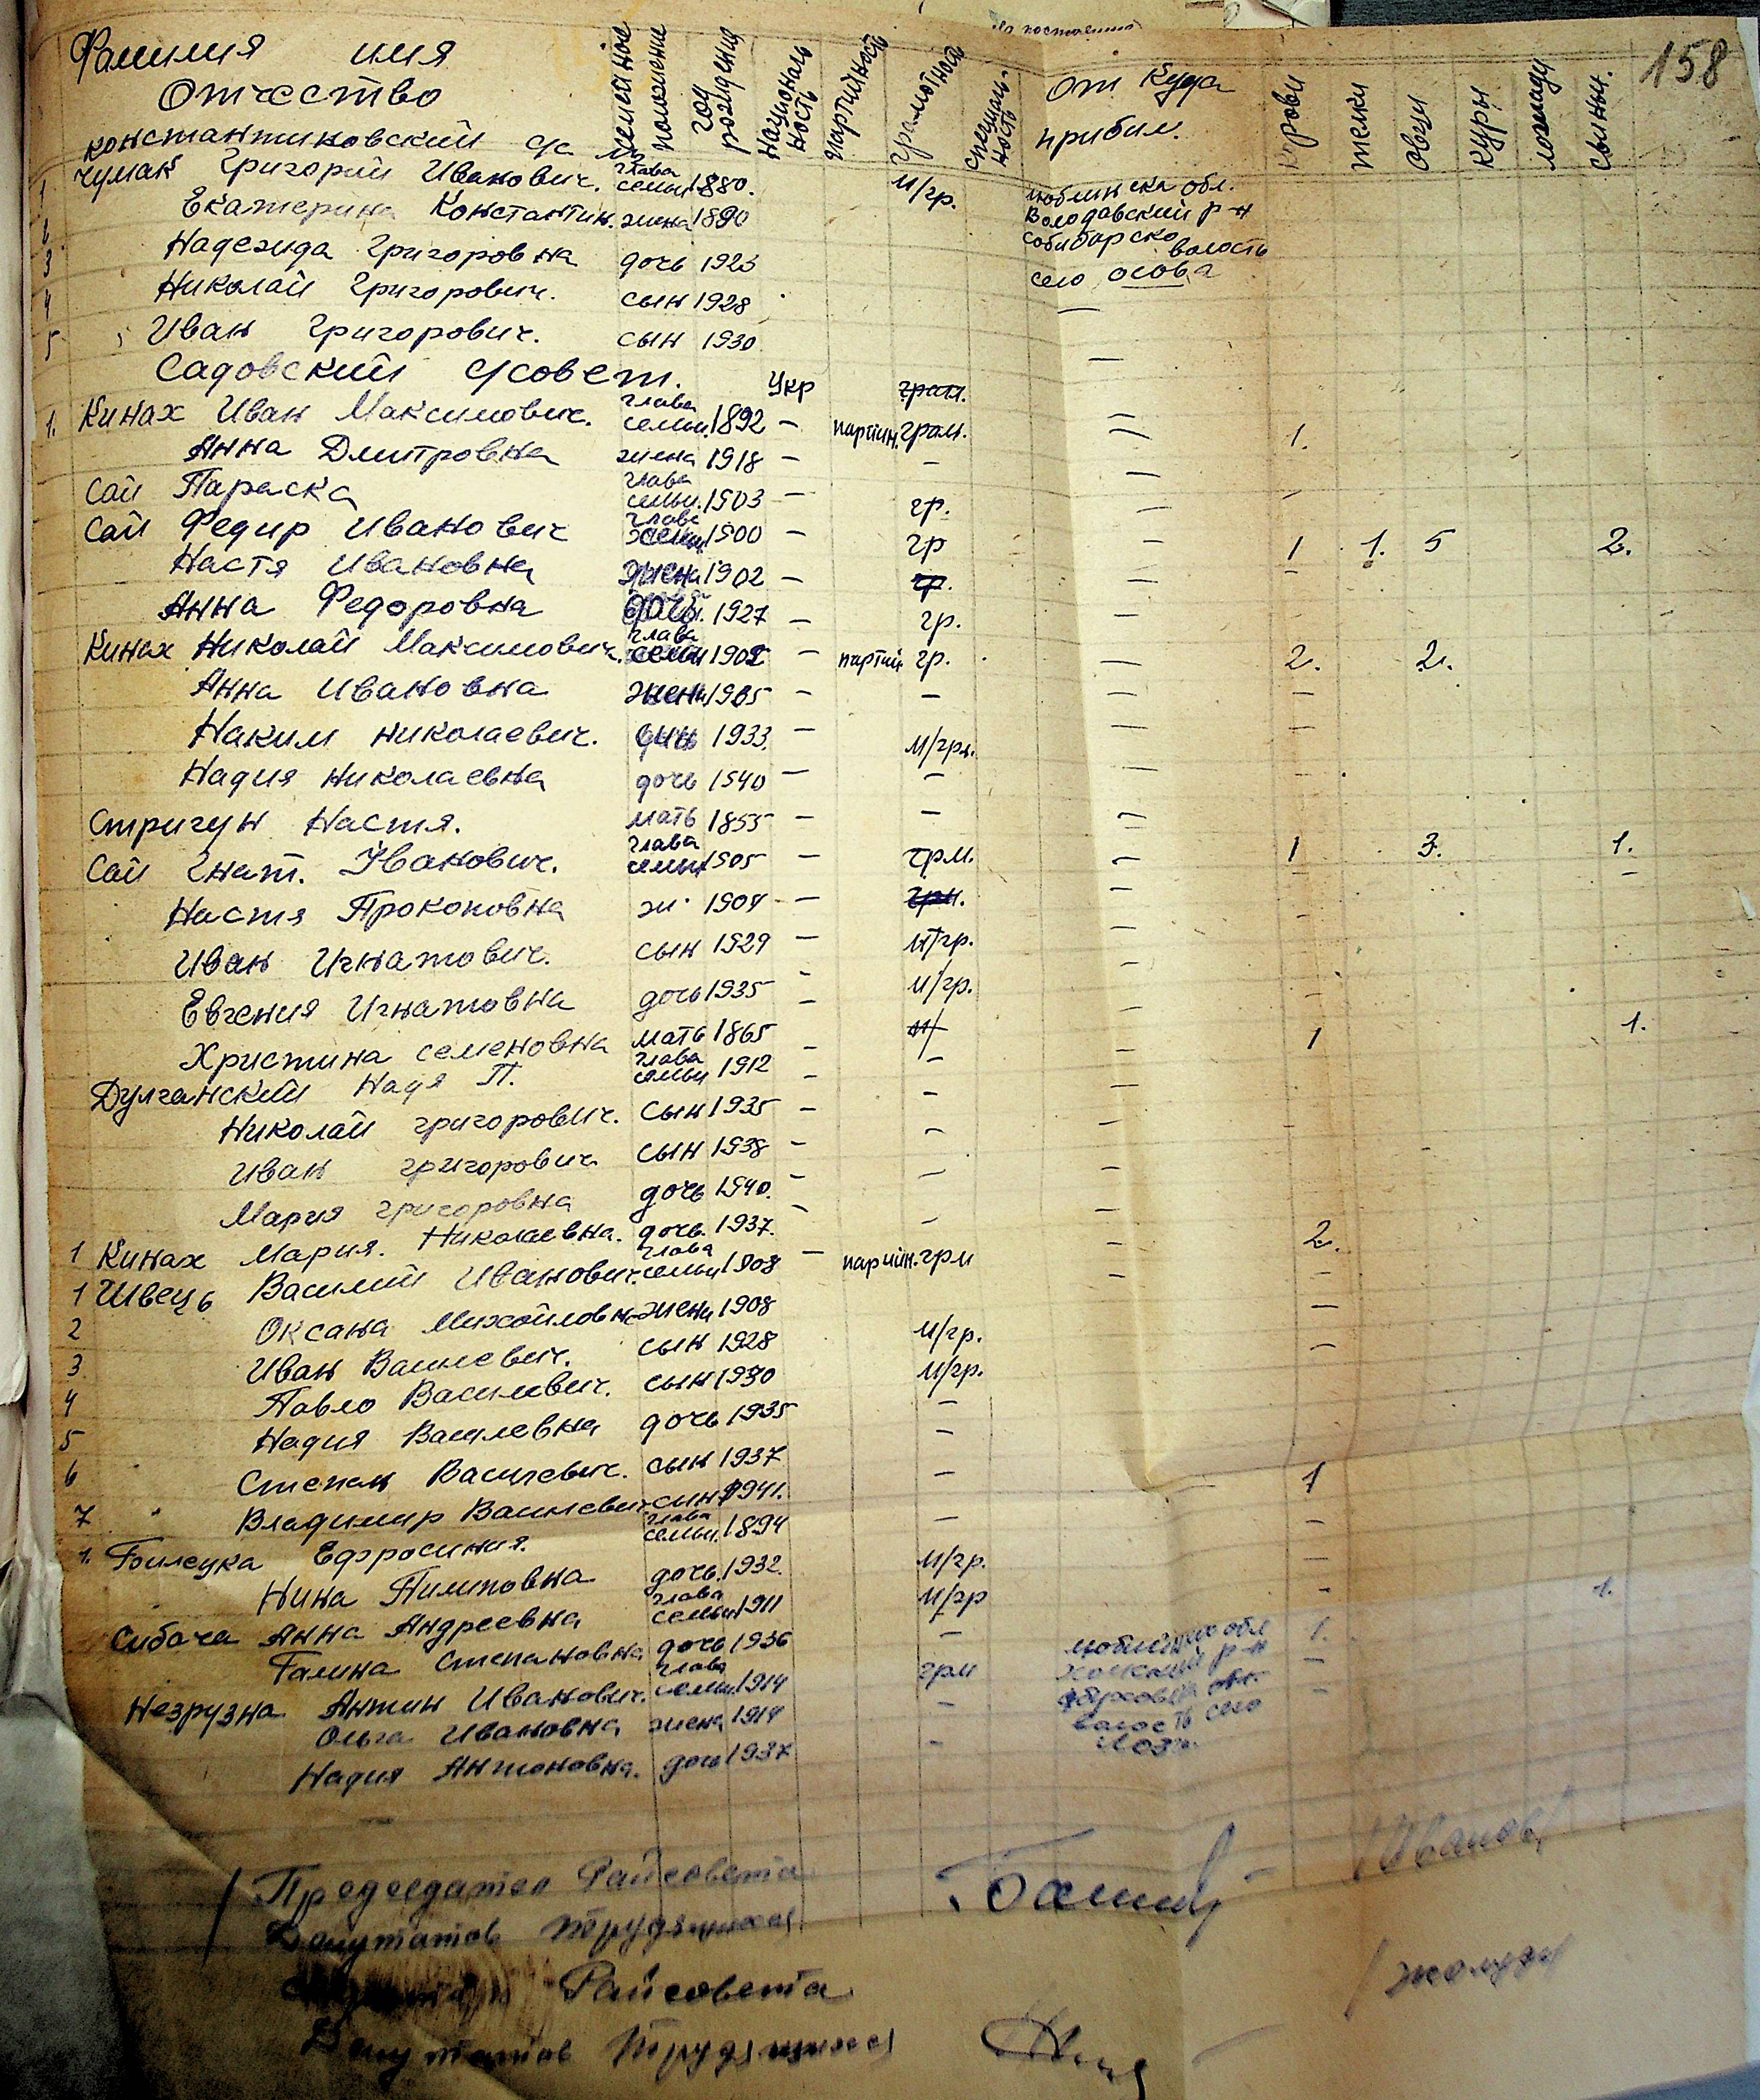 158
Фамилия имя Отчество семейное положение год рождения националь ность партийность грамотность специаль- ность от куда прибил. корови телки овци кури лошади свиньи.
константиновский с/с
1 чумак Григорий Иванович. глава семьи 1880. М/гр. люблинска обл.
2 Екатерина Константин. жена 1890 Володавский р-н
3 Надежида Григоровна дочь 1923 собибарско волость
4 Николай Григорович. сын 1928 село осова
5 Иван Григорович. сын 1930 —
Садовский с/совет. —
Укр грам.
1. Кинах Иван Максимович. глава семьи. 1892 — партийн. грам. — 1.
Анна Дмитровна жена 1918 — — —
Сай Параска глава семьи. 1903 — гр. —
Сай Федир Иванович глава 1900 — гр — 1 1. 5 2.
Настя Ивановна жена 1902 — гр. —
Анна Федоровна дочь. 1927 — гр. —
Кинах Николай Максимович. глава семьи 1902 — партий. гр. — 2. 2.
Анна Ивановна жена 1905 — — —
Наким николаевич. сын 1933. — М/грм. —
Надия николаевна дочь 1940 — — —
Стригун Настя. мать 1855 — — —
Сай Гнат. Иванович. глава семьи 1905 — грм. — 1 3. 1.
Настя Прокоповна ж. 1904 — грм. —
Иван Игнатович. сын 1929 — М/гр. —
Евгения Игнатовна дочь 1935 — М/гр. —
Христина семеновна мать 1865 — — 1 1.
Дулганский Надя П. глава семьи 1912 — — —
Николай григорович. сын 1935 — — —
Иван григорович сын 1938 — — —
Мария григоровна дочь 1940. — — —
1 Кинах Мария. Николаевна. дочь. 1937. — — — 2.
1 Швець Василий Иванович. глава семьи 1908 — парийн. грм —
2 Оксана Михайловна жена 1908
3. Иван Василевич. сын 1928 М/гр.
4 Павло Василевич. сын 1930 М/гр.
5 Надия Василевна дочь 1935 —
6 Степан Василевич. сын 1937 —
7 Владимир Василевич син 1941. — 1
1. Ефросиния. глава семьи. 1894 —
Нина Пилиповна дочь. 1932. М/гр.
Сибача Анна Андреевна глава семьи 1911 М/гр 1.
Галина Степановна дочь 1936 — обл 1.
Незрузна Антин Иванович. глава семьи 1914 грм р-н
Ольга Ивановна жена 1914 —
Надия Антоновна. дочь 1937 — волость село
Председател Райсовета
Депутатов Трудящихся /Иванов/
Райсовета
Депутатов Трудящихся